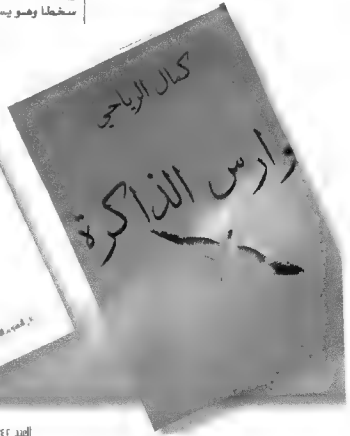 سخطا وهو يس
كمال الرياحي
وارس الذاكرة
العدد ٤٢